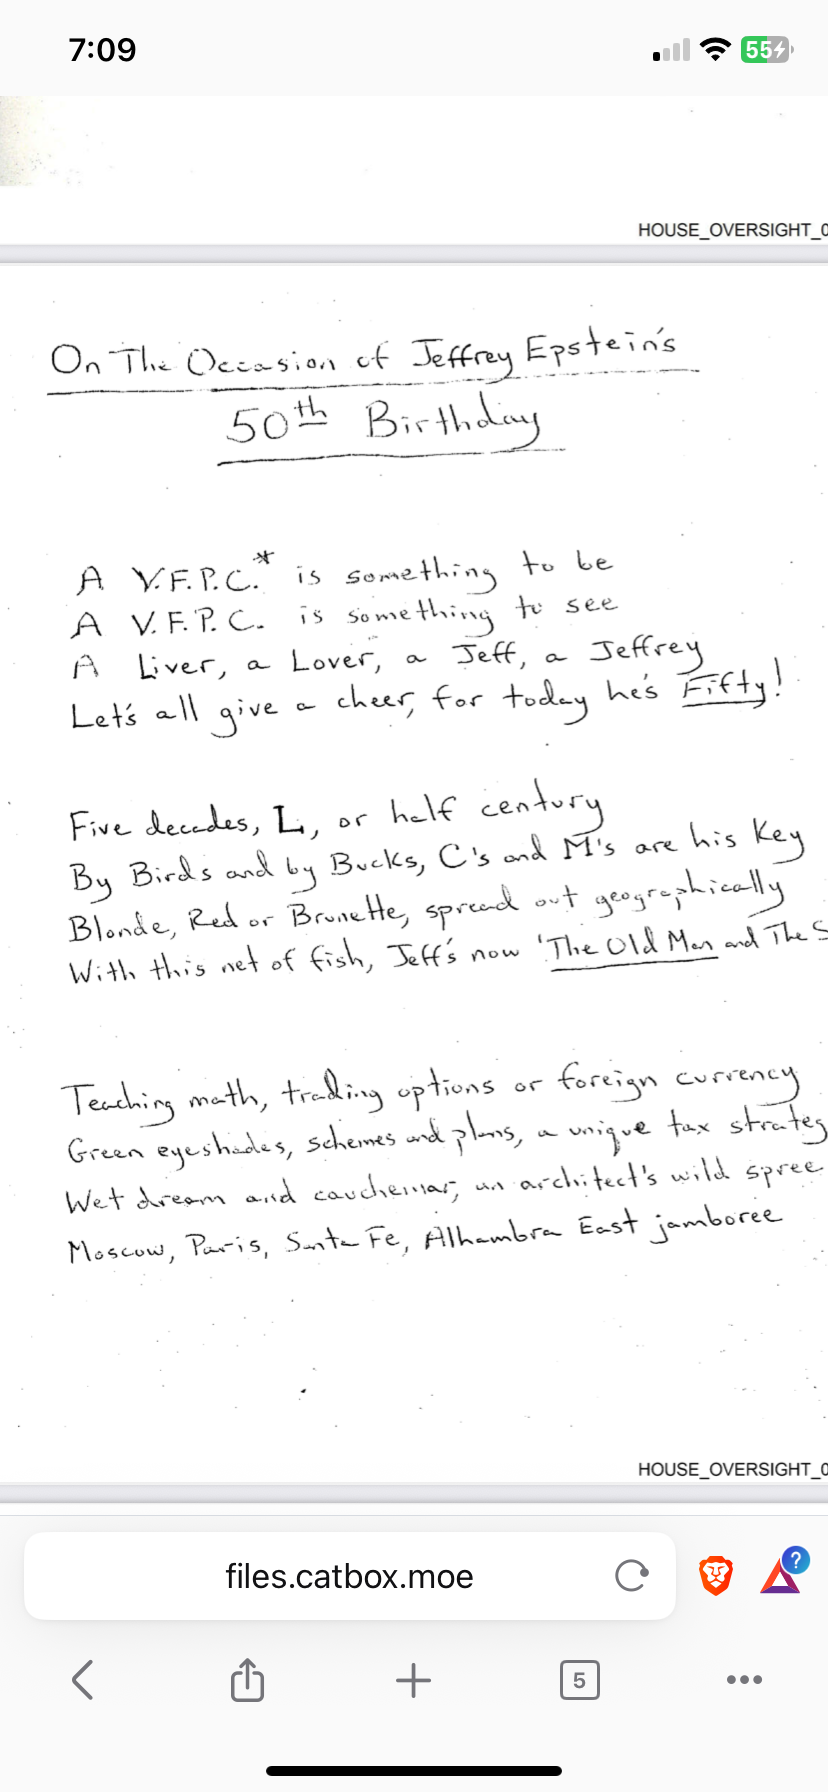 7:09
55
HOUSE_OVERSIGHT_0
On The Occasion of Jeffrey Epstein's
50th Birthday
A V.F.P.C.* is something to be
A V.F.P.C. is something to see
A Liver, a Lover, a Jeff, a Jeffrey
Let's all give a cheer, for today he's Fifty!
Five decades, L, or half century
By Birds and by Bucks, C's and M's are his Key
Blonde, Red or Brunette, spread out geographically
With this net of fish, Jeff's now 'The Old Man and The S
Teaching math, trading options or foreign currency
Green eyeshades, schemes and plans, a unique tax strateg
Wet dream and cauchemar, an architect's wild spree
Moscow, Paris, Santa Fe, Alhambra East jamboree
HOUSE_OVERSIGHT_0
files.catbox.moe
?
5